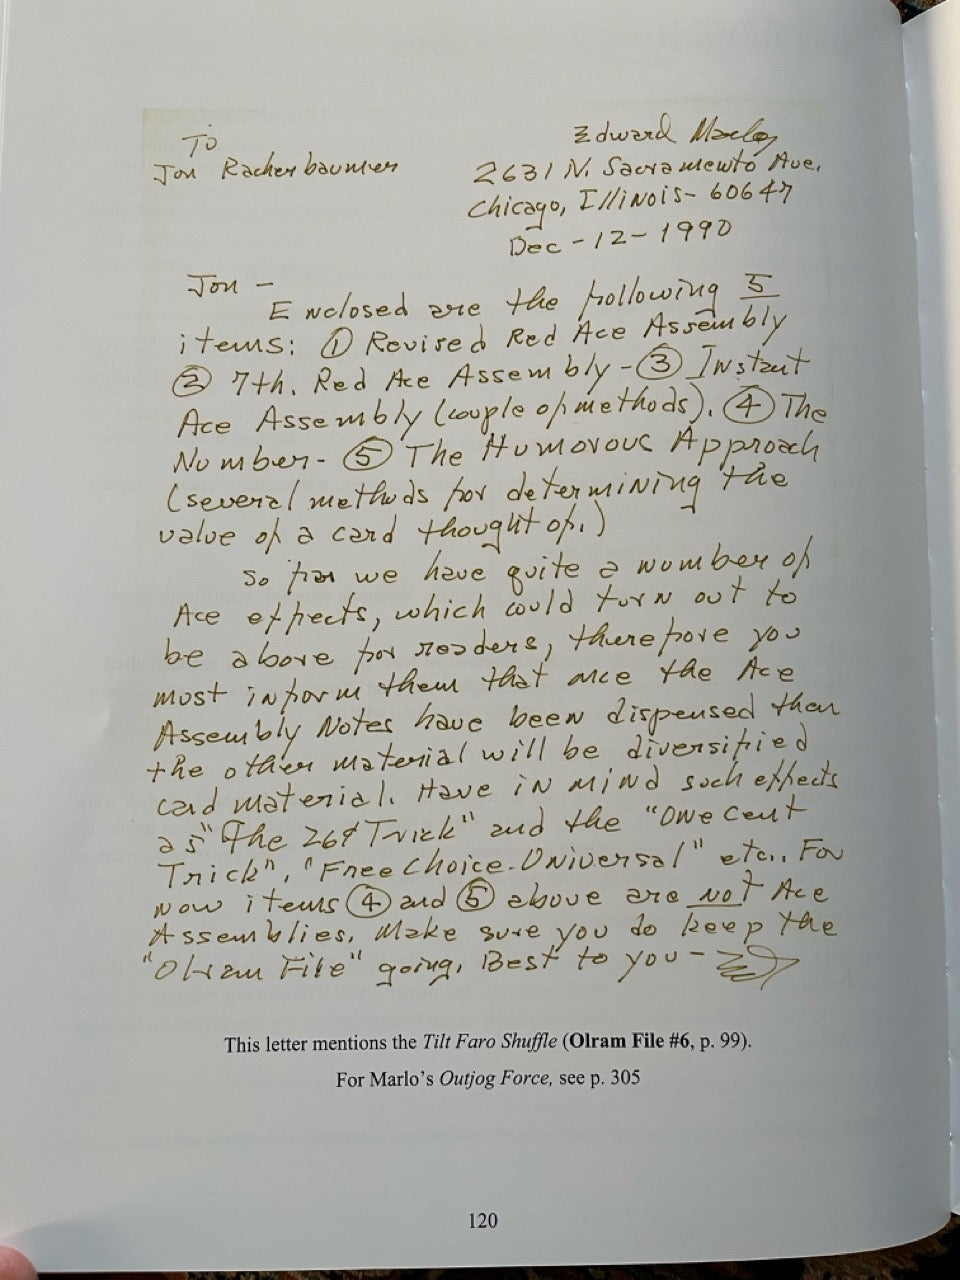 To
Jon Racherbaumer
Edward Marlo
2631 N. Sacramento Ave.
Chicago, Illinois- 60647
Dec-12-1990
Jon -
Enclosed are the following 5
items: ① Revised Red Ace Assembly
② 7th. Red Ace Assembly - ③ Instant
Ace Assembly (couple of methods). ④ The
Number- ⑤ The Humorous Approach
(several methods for determining the
value of a card thought of.)
So far we have quite a number of
Ace effects, which could turn out to
be a bore for readers, therefore you
must inform them that once the Ace
Assembly Notes have been dispensed then
the other material will be diversified
card material. Have in mind such effects
as "The 26¢ Trick" and the "One Cent
Trick", "Free Choice-Universal" etc.. For
now items ④ and ⑤ above are not Ace
Assemblies. Make sure you do keep the
"Olram File" going. Best to you -
This letter mentions the Tilt Faro Shuffle (Olram File #6, p. 99).
For Marlo's Outjog Force, see p. 305
120